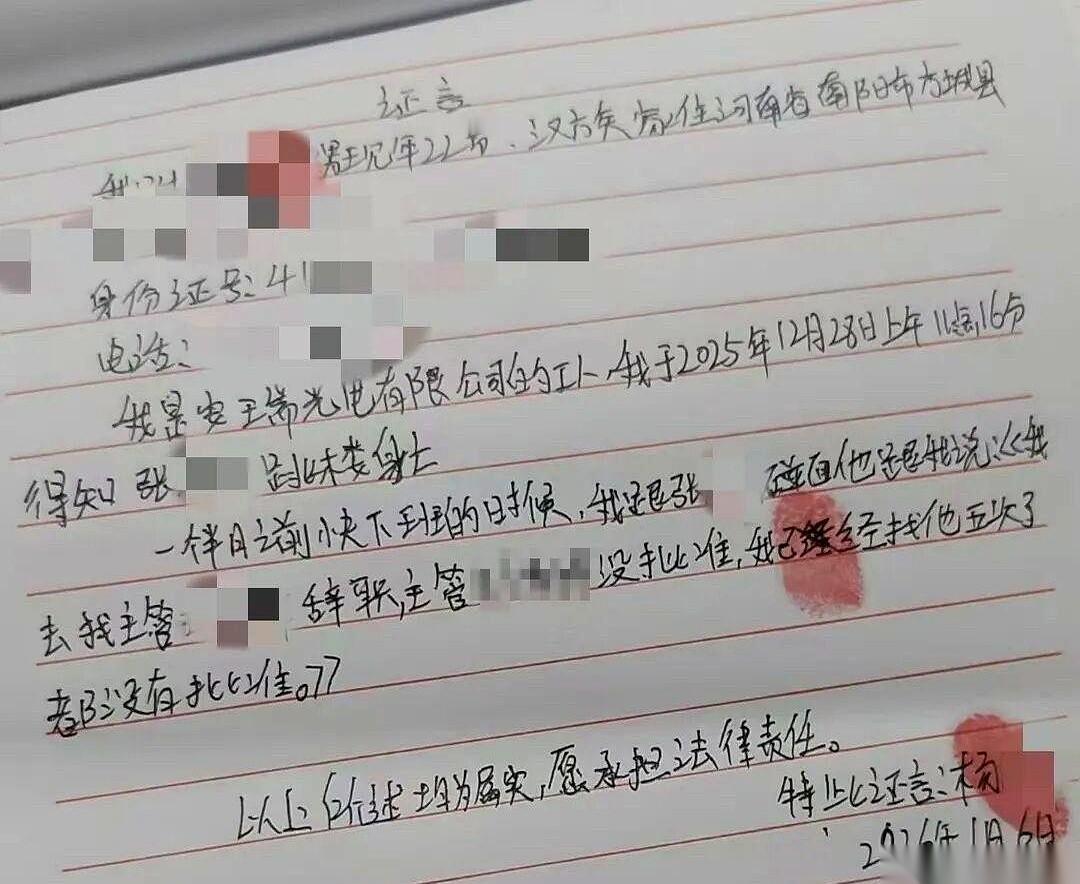 证言
我叫 男现年22岁、汉族家住河南省南阳市方城县
身份证号:41
电话:
我是安 瑞光电有限公司的工人,我于2025年12月28日上午11点16分
得知张 跳楼身亡
一个半月之前快下班的时候,我跟张 碰面他跟我说:《我
去找主管 辞职,主管 没批准,我已经经找他五次了
都没有批准。》
以上所述均为属实,愿承担法律责任。
特此证言:杨
2026年1月6日